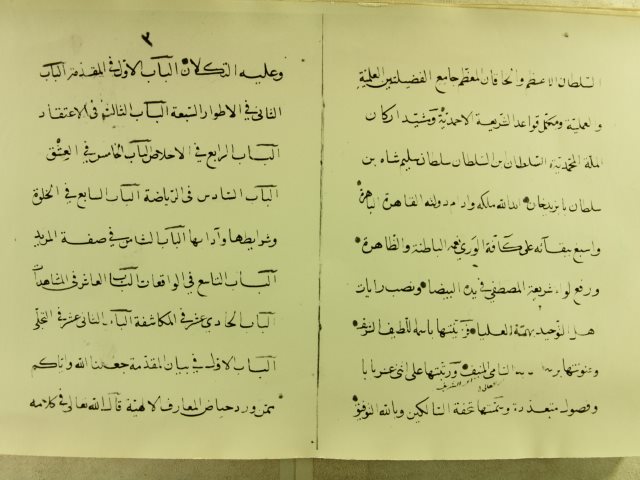 السلطان الاعظم والخاقان المعظم جامع الفضيلتين العلمية
والعملية ومكمل قواعد الشريعة الاحمدية ومشيد اركان
الملة المحمدية السلطان ابن السلطان سلطان سليم شاه بن
سلطان بايزيدخان ابد الله ملكه وادام دولته القاهرة الباهرة
واسبغ ببقائه على كافة الورى نعمه الباطنة والظاهرة
ورفع لواء شريعة المصطفى في يده البيضا ونصب رايات
اهل التوحيد بهمته العليا وزينتها باسمه اللطيف الشريف
وعنونتها السامي المنيف ورتبتها على اثنى عشر بابا
وفصول متعددة وسميتها تحفة السالكين وبالله التوفيق
٢
وعليه التكلان الباب الاول في المقدمة الباب
الثاني في الاطوار السبعة الباب الثالث في الاعتقاد
الباب الرابع في الاخلاص الباب الخامس في العشق
الباب السادس في الرياضة الباب السابع في الخلوة
وشرايطها وآدابها الباب الثامن في صفة المريد
الباب التاسع في الواقعات الباب العاشر في المشاهدات
الباب الحادي عشر في المكاشفة الباب الثاني عشر في التجلي
الباب الاول في بيان المقدمة جعلنا الله واياكم
ممن ورد حياض المعارف الالهية قال الله تعالى في كلامه